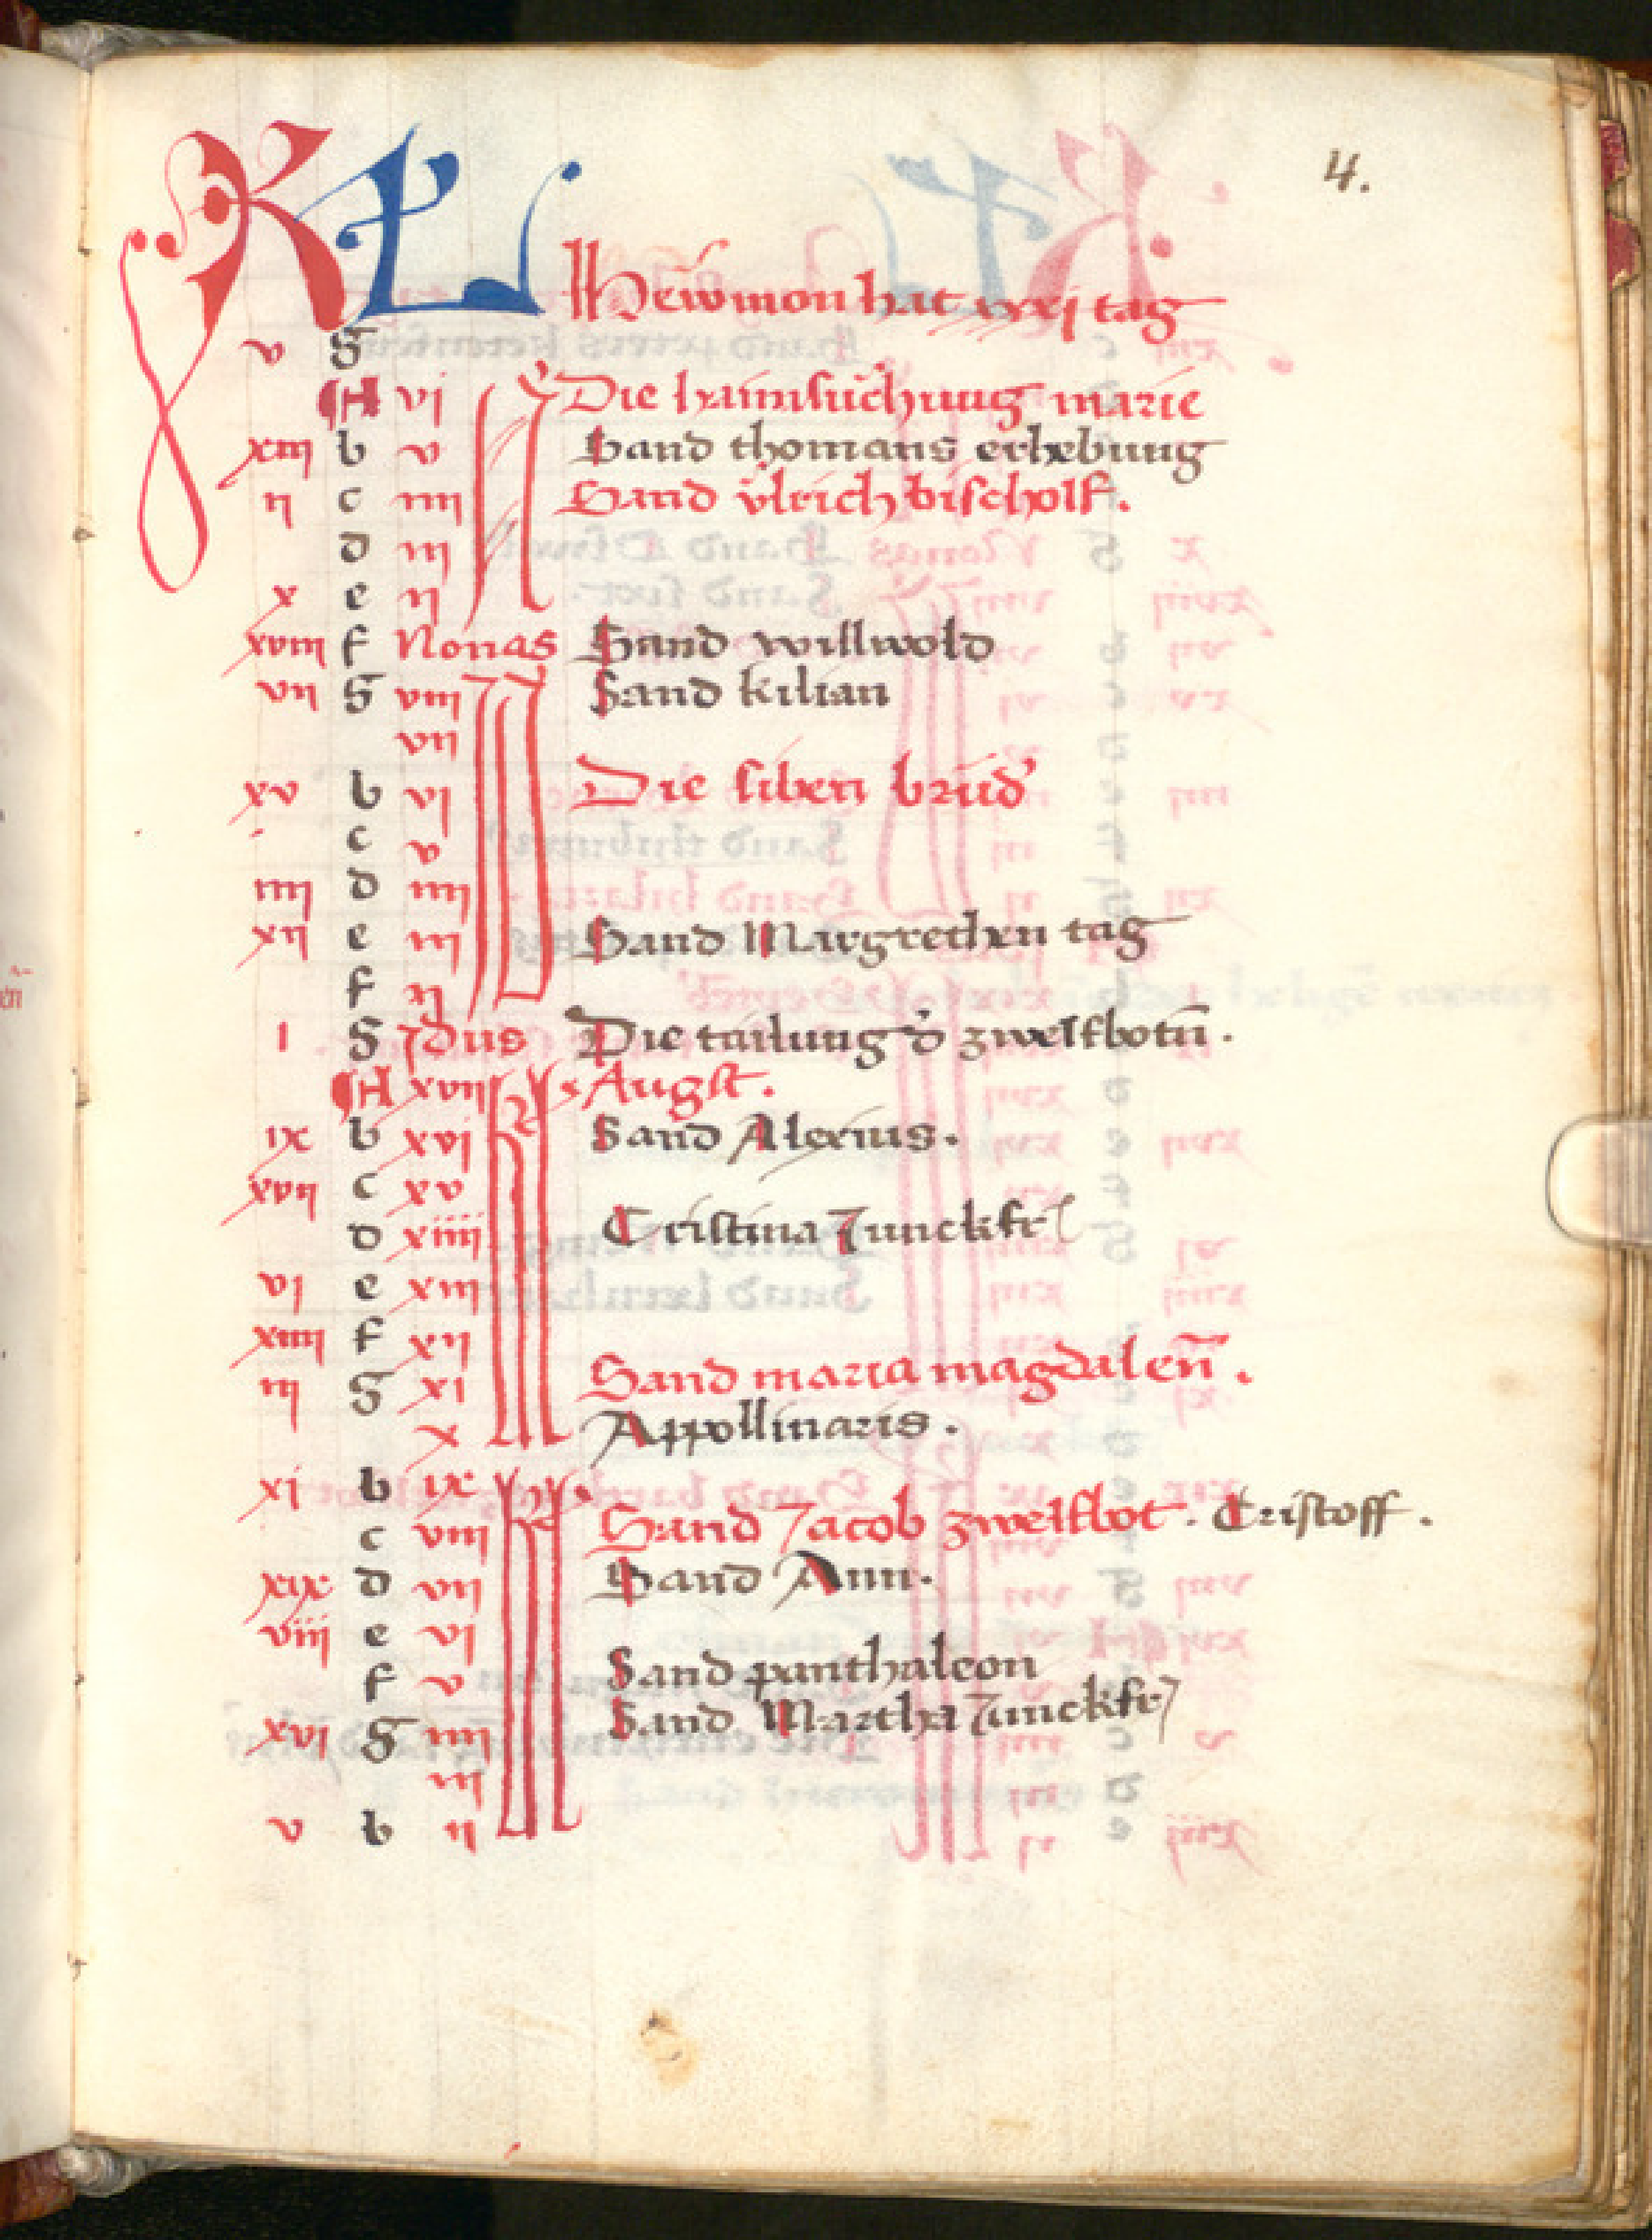 4.
KL Hewmon hat xxxj tag
v g
A vj Die haimsuchung marie
xiii b v Sand thomans erhebung
ii c iiii Sand vlreich bischolf.
d iii
x e ii
xviii f Nonas Sand willwold
vii g viii Sand kilian
vii
xv b vj Die siben brud'
c v
iiii d iiii
xii e iii Sand Margrethen tag
f ii
I g Jdus Die tailung d' zwelfbotn̄.
A xvii Augst.
ix b xvj Sand Alexius.
xvii c xv
d xiiii Cristina Junckfr
vj e xiii
xiiii f xii
iii g xi Sand maria magdalen̄.
x Appollinaris.
xi b ix
c viii Sand Jacob zwelfbot. Cristoff.
xix d vii Sand Ann.
viii e vj
f v Sand panthaleon
xvj g iiii Sand Martha Junckfr
iii
v b ii